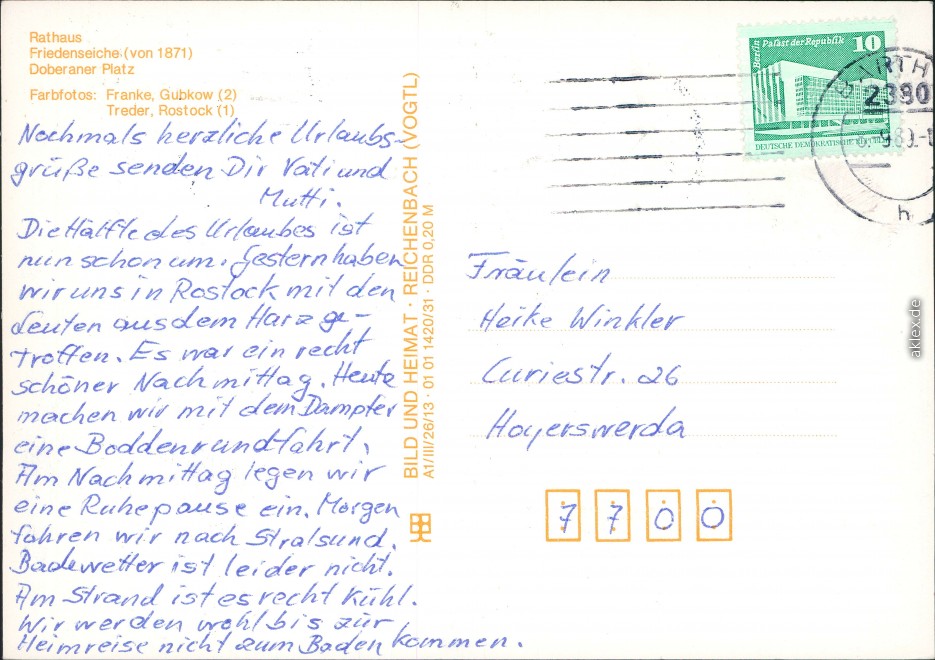 Rathaus
Friedenseiche (von 1871)
Doberaner Platz
Farbfotos: Franke, Gubkow (2)
Treder, Rostock (1)
Nochmals herzliche Urlaubs-
grüße senden Dir Vati und
Mutti.
Die Hälfte des Urlaubes ist
nun schon um. Gestern haben
wir uns in Rostock mit den
Leuten aus dem Harz ge-
troffen. Es war ein recht
schöner Nachmittag. Heute
machen wir mit dem Dampfer
eine Boddenrundfahrt.
Am Nachmittag legen wir
eine Ruhepause ein. Morgen
fahren wir nach Stralsund.
Badewetter ist leider nicht.
Am Strand ist es recht kühl.
Wir werden wohl bis zur
Heimreise nicht zum Baden kommen.
BILD UND HEIMAT · REICHENBACH (VOGTL)
A1/III/26/13 · 01 01 1420/31 · DDR 0,20 M
Berlin Palast der Republik 10
DEUTSCHE DEMOKRATISCHE REPUBLIK
BARTH
2380
h
Fräulein
Heike Winkler
Curiestr. 26
Hoyerswerda
7 7 0 0
aklex.de